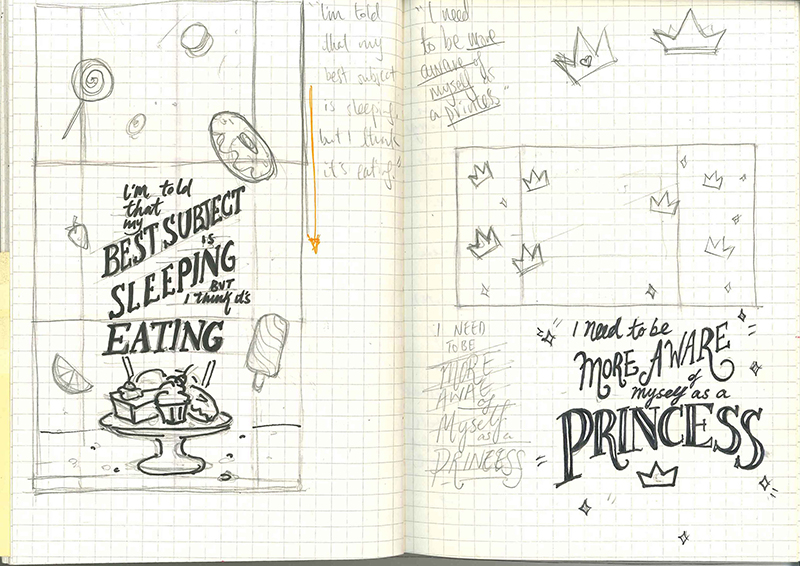 "I'm told
that my
best subject
is sleeping,
but I think
it's eating."
i'm told
that
my
BEST SUBJECT
is
SLEEPING
BUT
i think it's
EATING
"I need
to be more
aware of
myself as
a princess"
"I NEED
TO BE
MORE
AWAE
of
Myself
as a
PRINCESS
I need to be
MORE AWARE
of
myself as a
PRINCESS